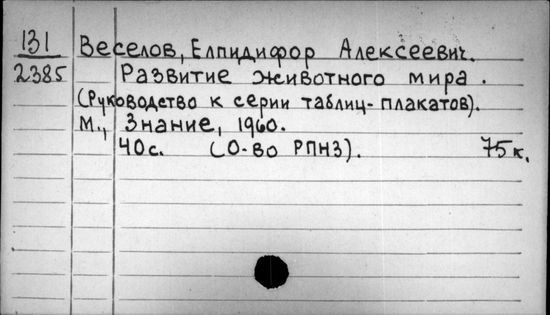 131 Веселов, Елпидифор Алексеевич.
2385 Развитие животного мира.
(Руководство к серии таблиц-плакатов).
М., Знание, 1960.
40с. (О-во РПНЗ). 75к.